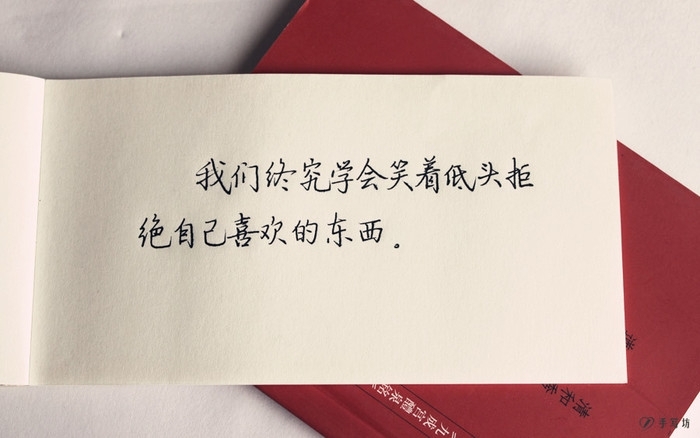 我们终究学会笑着低头拒
绝自己喜欢的东西。
手写坊